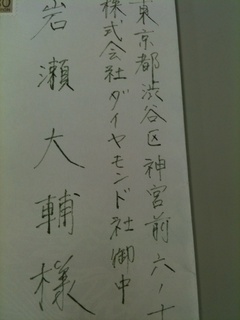 東京都渋谷区神宮前六ノ十
株式会社ダイヤモンド社御中
岩瀬大輔様